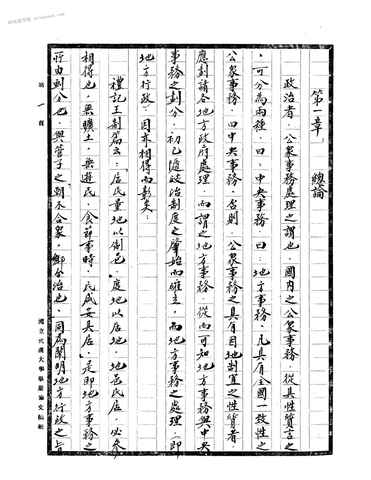 第一章 總論
政治者，公眾事務處理之謂也，國內之公眾事務，從其性質言之
，可分為兩種，曰：中央事務，曰：地方事務，凡具有全國一致性之
公眾事務，曰中央事務，否則，公眾事務之具有因地制宜之性質者，
應劃諸各地方政府處理，而謂之地方事務，從而可知地方事務與中央
事務之劃分，初已隨政治制度之肇始而確立，而地方事務之處理，即
地方行政，因亦相得而彰矣。
禮記王制篇云：「居民量地以制邑，度地以居地，地邑民居，必參
相得也，無曠土，無遊民，食節事時，民咸安其居」，是即地方事務之
所由制分也，與管子之「朝不合眾，鄉分治也，」同為闡明地方行政之旨
第一頁
國立武漢大學畢業論文稿紙